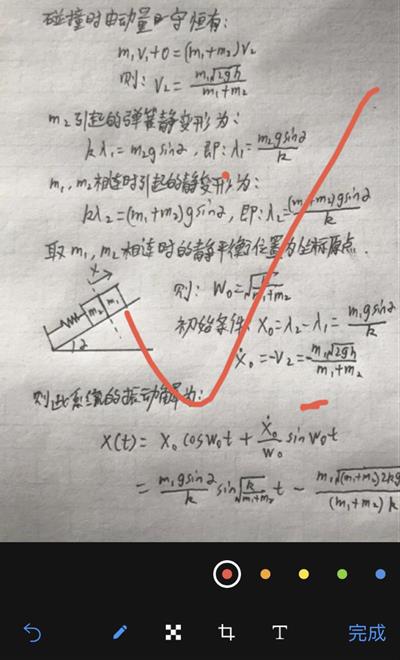 碰撞时由动量守恒有:
m₁v₁+0=(m₁+m₂)v₂
则: v₂=m₁√2gh/m₁+m₂
m₂引起的弹簧静变形为:
kλ₁=m₂gsin2, 即: λ₁=m₂gsin2/k
m₁,m₂相连时引起的静变形为:
kλ₂=(m₁+m₂)gsin2, 即: λ₂=(m₁+m₂)gsin2/k
取m₁,m₂相连时的静平衡位置为坐标原点.
x
m₂ m₁
2
则: W₀=√k/m₁+m₂
初始条件: X₀=λ₂-λ₁=m₁gsin2/k
Ẋ₀=-v₂=-m₁√2gh/m₁+m₂
则此系统的振动解为:
X(t)=X₀cosw₀t+Ẋ₀/w₀ sinw₀t
=m₁gsin2/k sin√k/m₁+m₂ t - m₁√(m₁+m₂)2kg/(m₁+m₂)k
T
完成